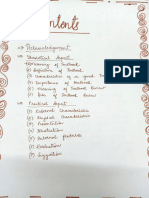 Contents
→ Acknowledgement
→ Theoretical Aspect
(1) Meaning of Textbook
(2) Definitions of Textbook
(3) Characteristics of a good Textbook
(4) Importance of Textbook
(5) Meaning of Textbook Review
(6) Need of Textbook Review
→ Practical Aspect
(1) External Characteristics
(2) Physical Characteristics
(3) Presentation
(4) Illustration
(5) Internal features
(6) Evaluation
(7) Suggestion